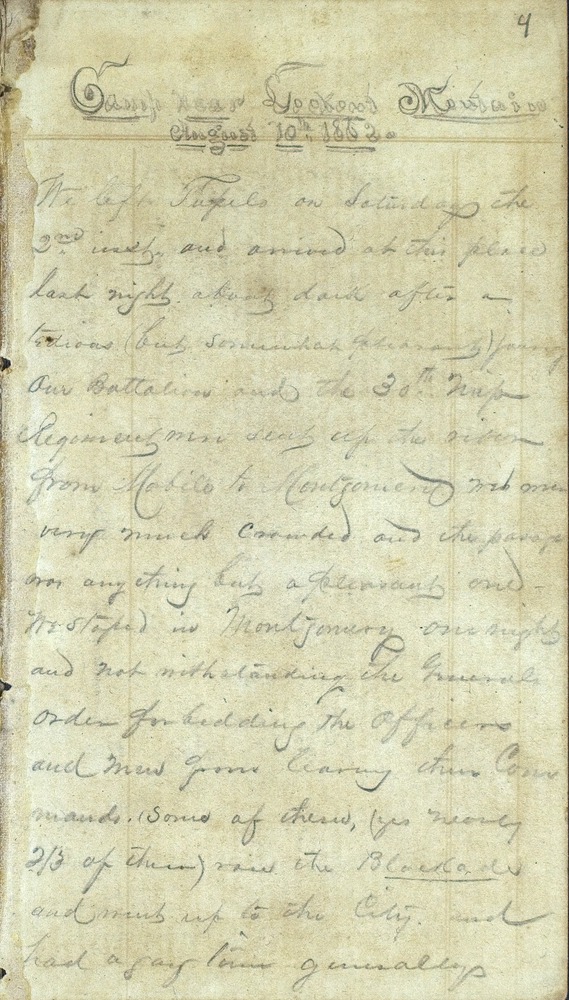 4
Camp near Lookout Mountain
August 10th 1862.
We left Tupelo on Saturday the
2nd inst. and arrived at this place
last night about dark after a
tedious (but somewhat pleasant)
Our Battalion and the 30th Miss
Regiment were sent up the river
from Mobile to Montgomery and were
very much crowded and the passage
was anything but a pleasant one
We stoped in Montgomery one night
and notwithstanding the Generals
order forbidding the Officers
and Men from leaving their Com
mands. Some of them, (yes nearly
2/3 of them) ran the Blockade
and went up to the City. and
had a gay time generally